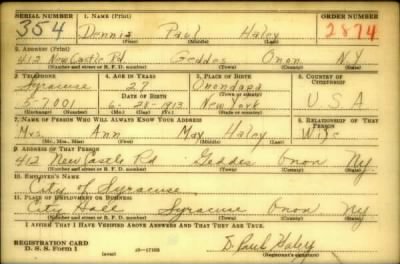 SERIAL NUMBER 1. NAME (Print) ORDER NUMBER
354 Dennis Paul Haley 2874
(First) (Middle) (Last)
2. ADDRESS (Print)
412 New Castle Rd Geddes Onon NY
(Number and street or R. F. D. number) (Town) (County) (State)
3. TELEPHONE 4. AGE IN YEARS 5. PLACE OF BIRTH 6. COUNTRY OF CITIZENSHIP
Syracuse 27 Onondaga
DATE OF BIRTH (Town or county)
5-7001 6-28-1913 New York U S A
(Exchange) (Number) (Mo.) (Day) (Yr.) (State or country)
7. NAME OF PERSON WHO WILL ALWAYS KNOW YOUR ADDRESS 8. RELATIONSHIP OF THAT PERSON
Mrs. Ann May Haley Wife
(Mr., Mrs., Miss) (First) (Middle) (Last)
9. ADDRESS OF THAT PERSON
412 New Castle Rd Geddes Onon Ny
(Number and street or R. F. D. number) (Town) (County) (State)
10. EMPLOYER'S NAME
City of Syracuse
11. PLACE OF EMPLOYMENT OR BUSINESS
City Hall Syracuse Onon Ny
(Number and street or R. F. D. number) (Town) (County) (State)
I AFFIRM THAT I HAVE VERIFIED ABOVE ANSWERS AND THAT THEY ARE TRUE.
REGISTRATION CARD
D. S. S. Form 1 (over) D. Paul Haley
(Registrant's signature)